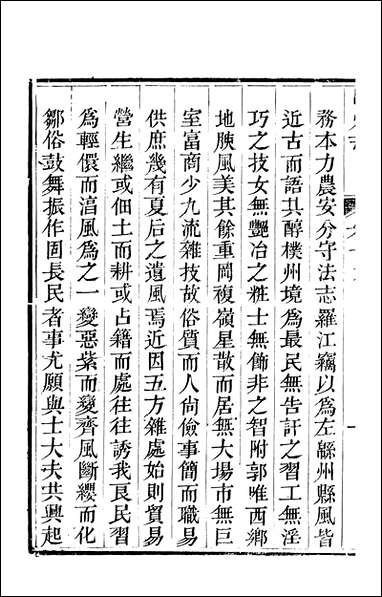 務本力農安分守法志羅江竊以為左緜州縣風皆
近古而語其醇樸州境為最民無告訐之習工無淫
巧之技女無豔冶之粧士無飾非之智附郭唯西鄉
地腴風美其餘重岡複嶺星散而居無大場市無巨
室富商少九流雜技故俗質而人尙儉事簡而職易
供庶幾有夏后之遺風焉近因五方雜處始則貿易
營生繼或佃土而耕或占籍而處往往誘我良民習
為輕儇而淯風為之一變惡紫而變齊風斷纓而化
鄒俗鼓舞振作固長民者事尤願與士大夫共興起